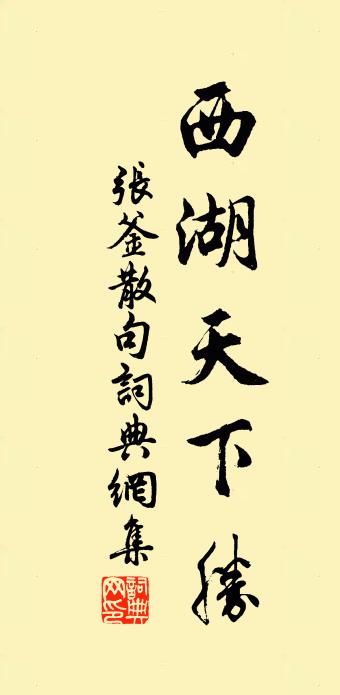 西湖天下勝
張釜散句詞典網集
詞典網印